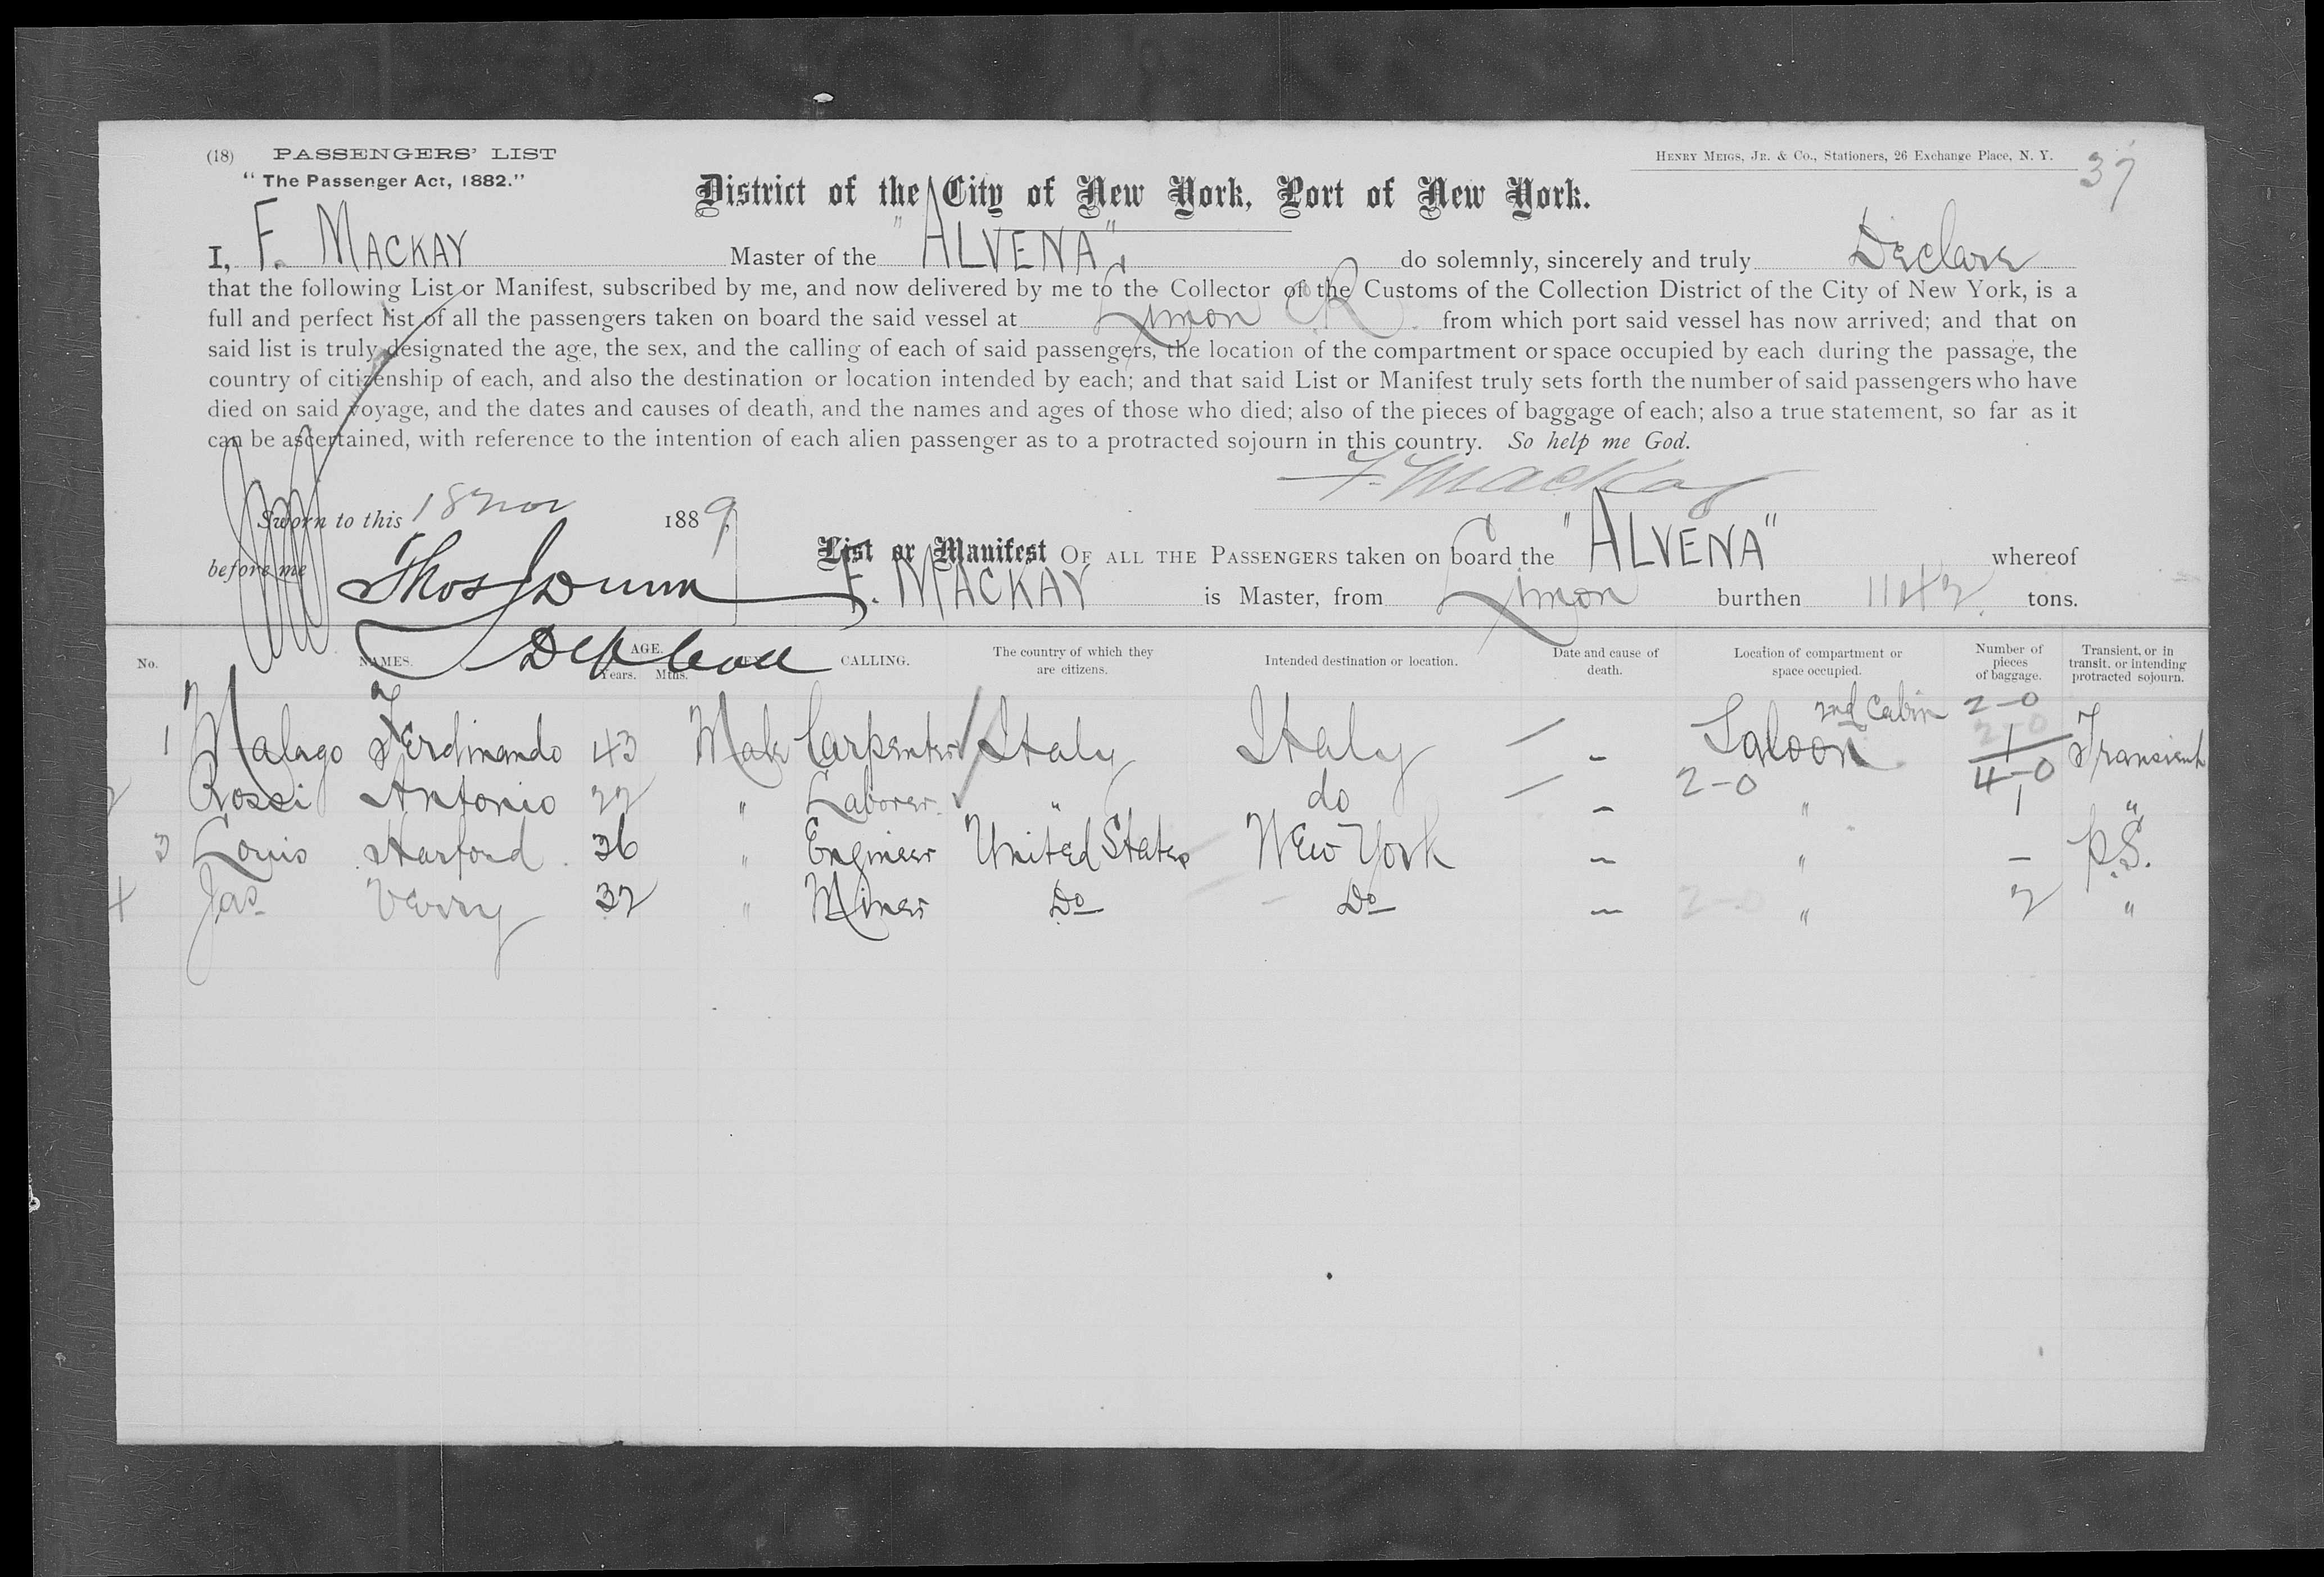 (18) PASSENGERS' LIST
HENRY MEIGS, JR. & Co., Stationers, 26 Exchange Place, N. Y. 37
"The Passenger Act, 1882."
District of the City of New York, Port of New York.
I, F. MACKAY Master of the "ALVENA", do solemnly, sincerely and truly Declare
that the following List or Manifest, subscribed by me, and now delivered by me to the Collector of the Customs of the Collection District of the City of New York, is a
full and perfect list of all the passengers taken on board the said vessel at Limon C.R. from which port said vessel has now arrived; and that on
said list is truly designated the age, the sex, and the calling of each of said passengers, the location of the compartment or space occupied by each during the passage, the
country of citizenship of each, and also the destination or location intended by each; and that said List or Manifest truly sets forth the number of said passengers who have
died on said voyage, and the dates and causes of death, and the names and ages of those who died; also of the pieces of baggage of each; also a true statement, so far as it
can be ascertained, with reference to the intention of each alien passenger as to a protracted sojourn in this country. So help me God.
F. Mackay
Sworn to this 18 Nov 1889
before me Thos J Dunn
Dep Coll
List or Manifest OF ALL THE PASSENGERS taken on board the "ALVENA" whereof
F. MACKAY is Master, from Limon burthen 1142 tons.
No. NAMES. AGE. Years. Mths. SEX. CALLING. The country of which they are citizens. Intended destination or location. Date and cause of death. Location of compartment or space occupied. Number of pieces of baggage. Transient, or in transit, or intending protracted sojourn.
2nd Cabin 2-0
1 Malago Ferdinando 43 Male Carpenter Italy Italy - Saloon 1 Transient
2-0 4-0
2 Rossi Antonio 22 " Laborer " do - " 1 "
3 Louis Harford 36 " Engineer United States New York - " - P.S.
4 Jas Verry 32 " Miner Do Do - " 2 "